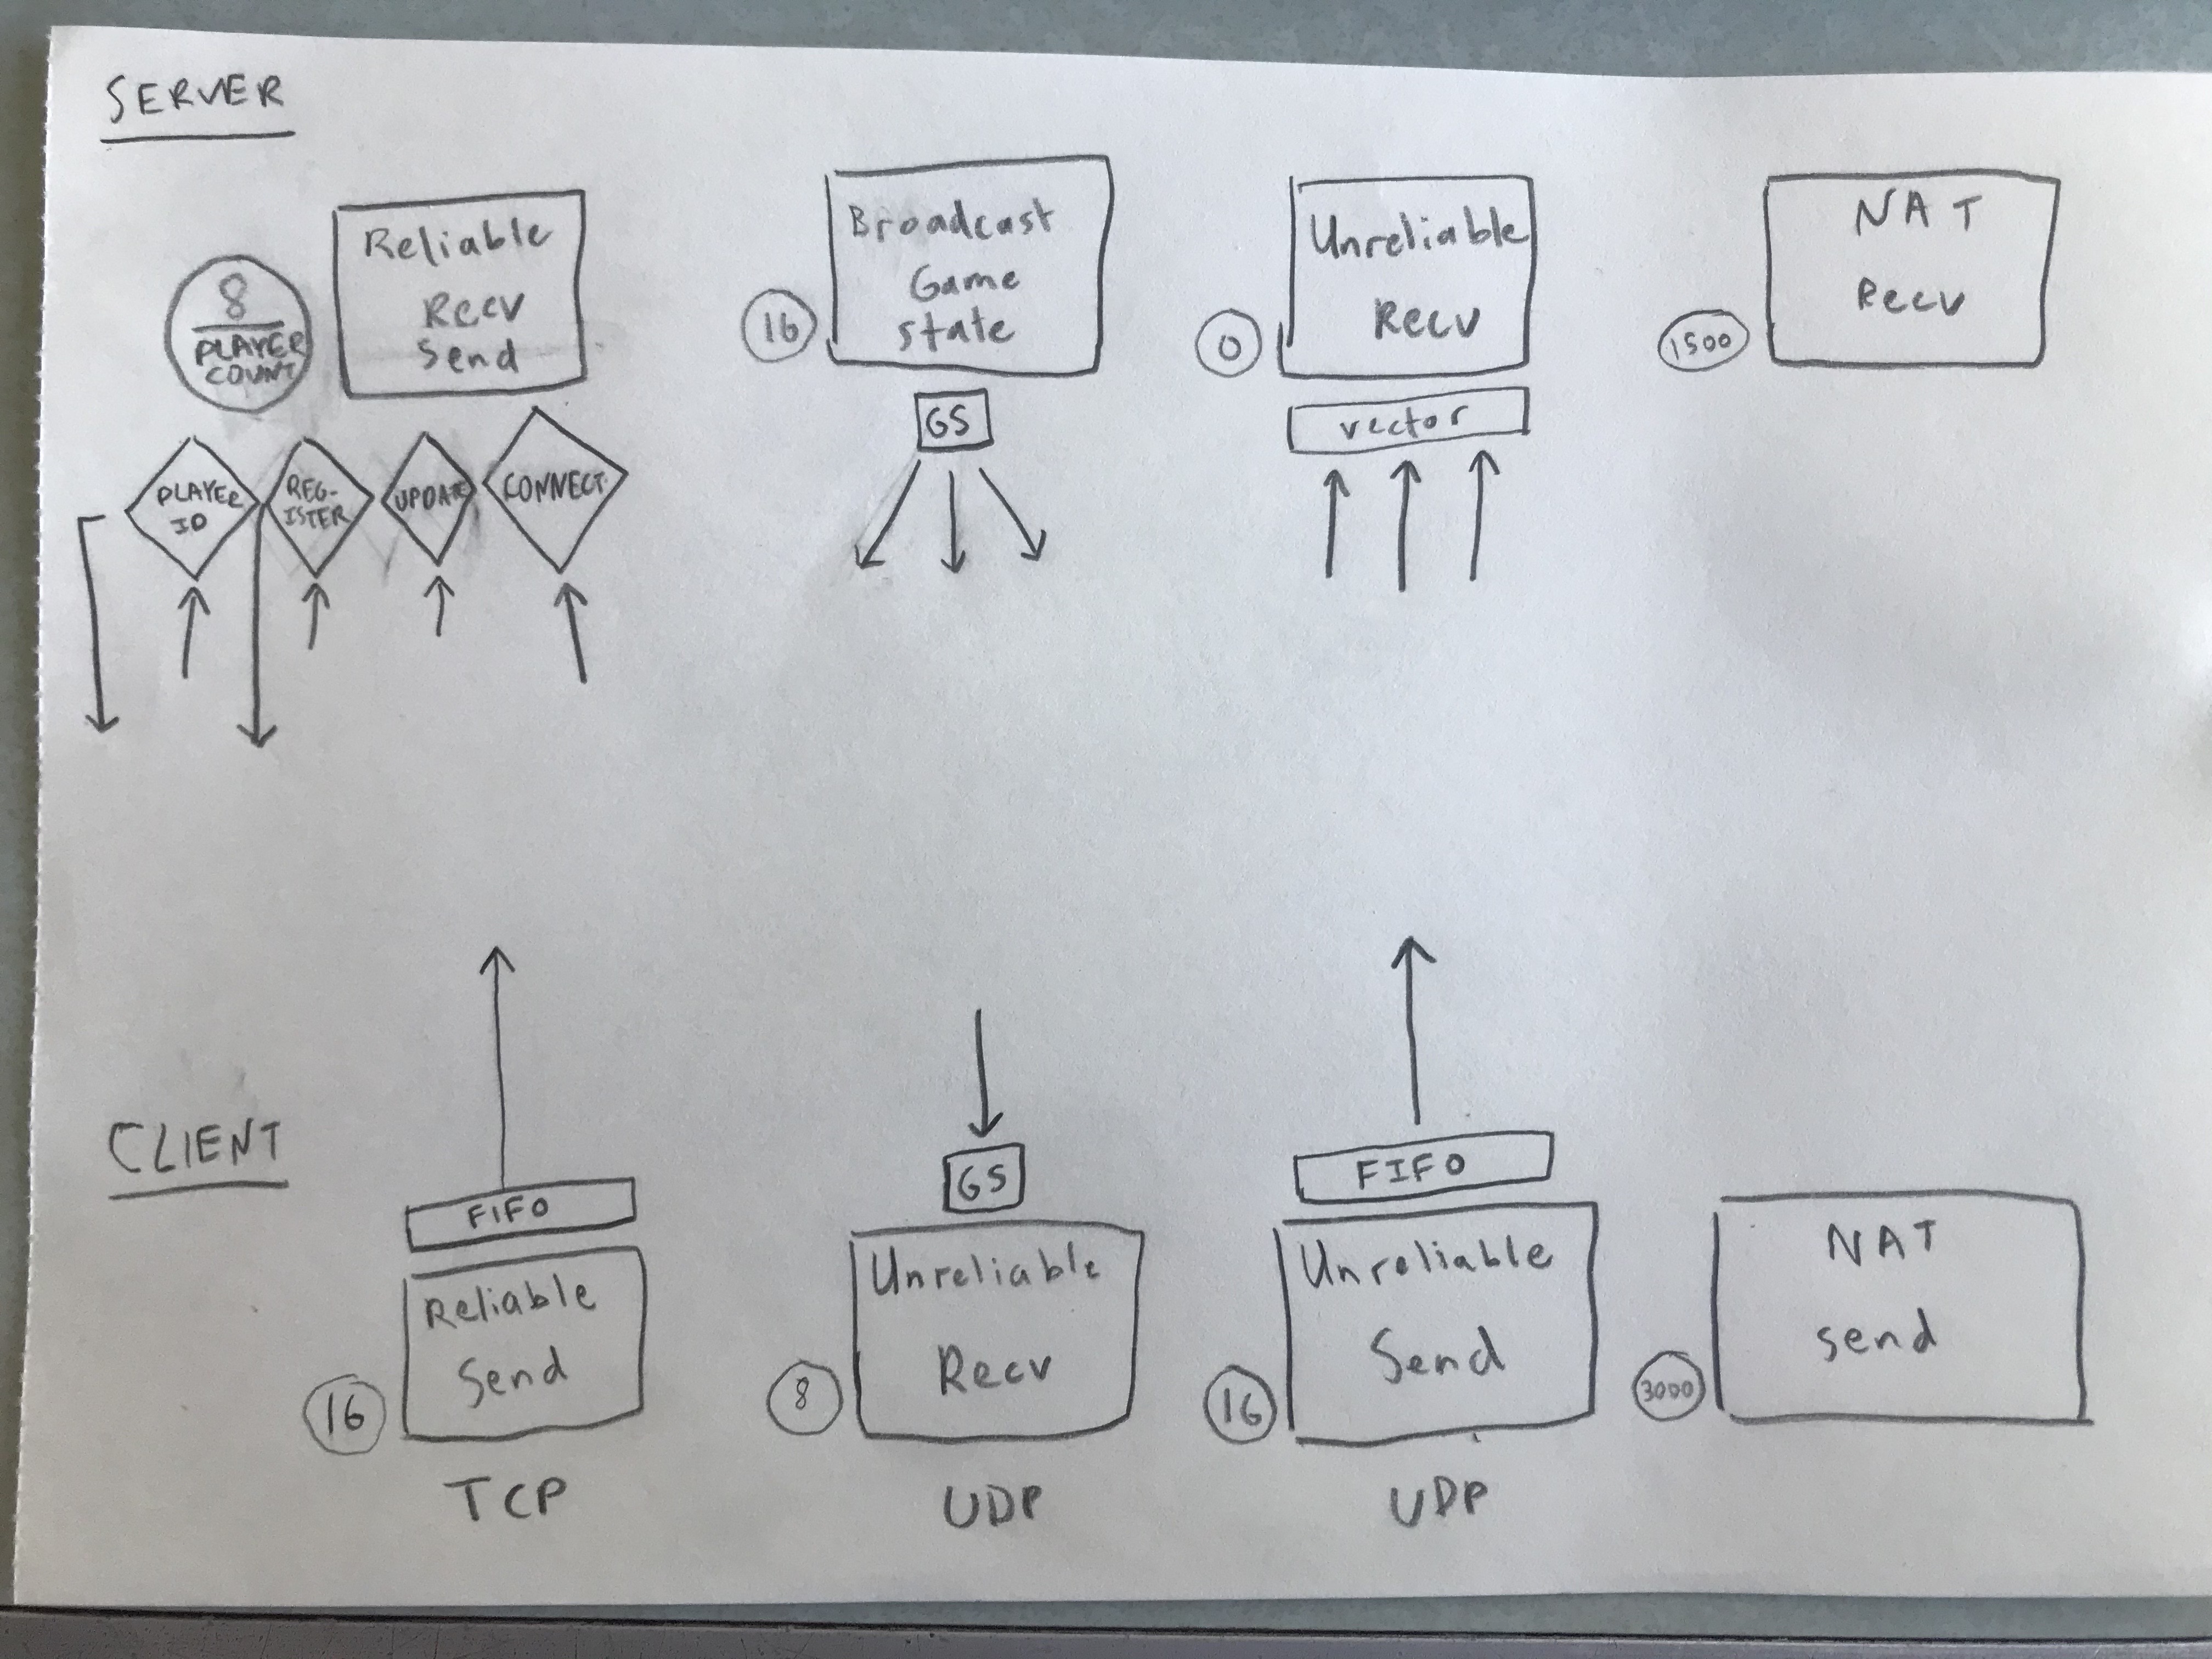 SERVER
8
PLAYER
COUNT
Reliable
Recv
Send
PLAYER
ID
REG-
ISTER
UPDATE
CONNECT
16
Broadcast
Game
state
GS
0
Unreliable
Recv
vector
1500
NAT
Recv
CLIENT
FIFO
Reliable
Send
16
TCP
GS
Unreliable
Recv
8
UDP
FIFO
Unreliable
Send
16
UDP
NAT
send
3000